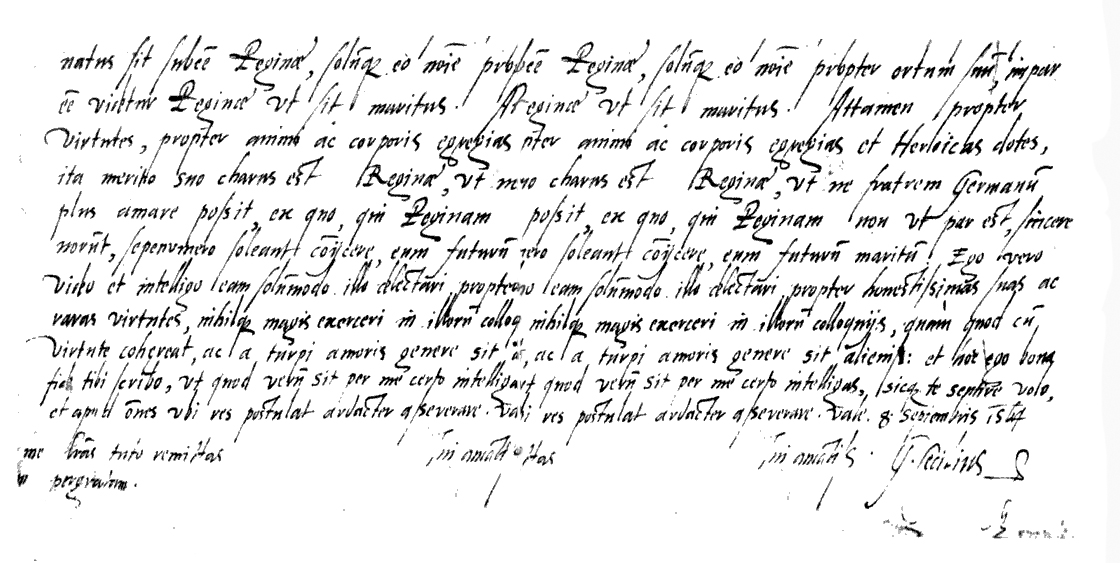 natus sit subēē Reginæ, solūqꝫ eo noīe propēē Reginæ, solūqꝫ eo noīe propter ortum suū, impar
ēē videtur Reginæ vt sit maritus. Reginæ vt sit maritus. Attamen propter
virtutes, propter animi ac corporis egregias pter animi ac corporis egregias et Heroicas dotes,
ita merito suo charus est Reginæ, vt mero charus est Reginæ, vt ne fratrem Germanū
plus amare possit, ex quo, qui Reginam possit, ex quo, qui Reginam non vt par est, sincere
norūt, sepenumero soleant cōijcere, eum futurū ero soleant cōijcere, eum futurū maritū. Ego vero
video et intelligo eam solūmodo illo delectari, propte eam solūmodo illo delectari propter honestissimas suas ac
raras virtutes, nihilqꝫ magis exerceri in illorū colloq nihilqꝫ magis exerceri in illorū colloquijs, quam quod cū
virtute cohereat, ac a turpi amoris genere sit ac a turpi amoris genere sit alienū: et hoc ego bona
fide tibi scribo, vt quod verū sit per me certo intelligas quod verū sit per me certo intelligas, sicqꝫ te sentire volo,
et apud ōnes vbi res postulat audacter asseverare. Va i res postulat audacter asseverare. Vale. 8 Septembris 1544
me lrās tuto remittas Tui amātis tas Tui amātis. G. Cecilius
pergratum.